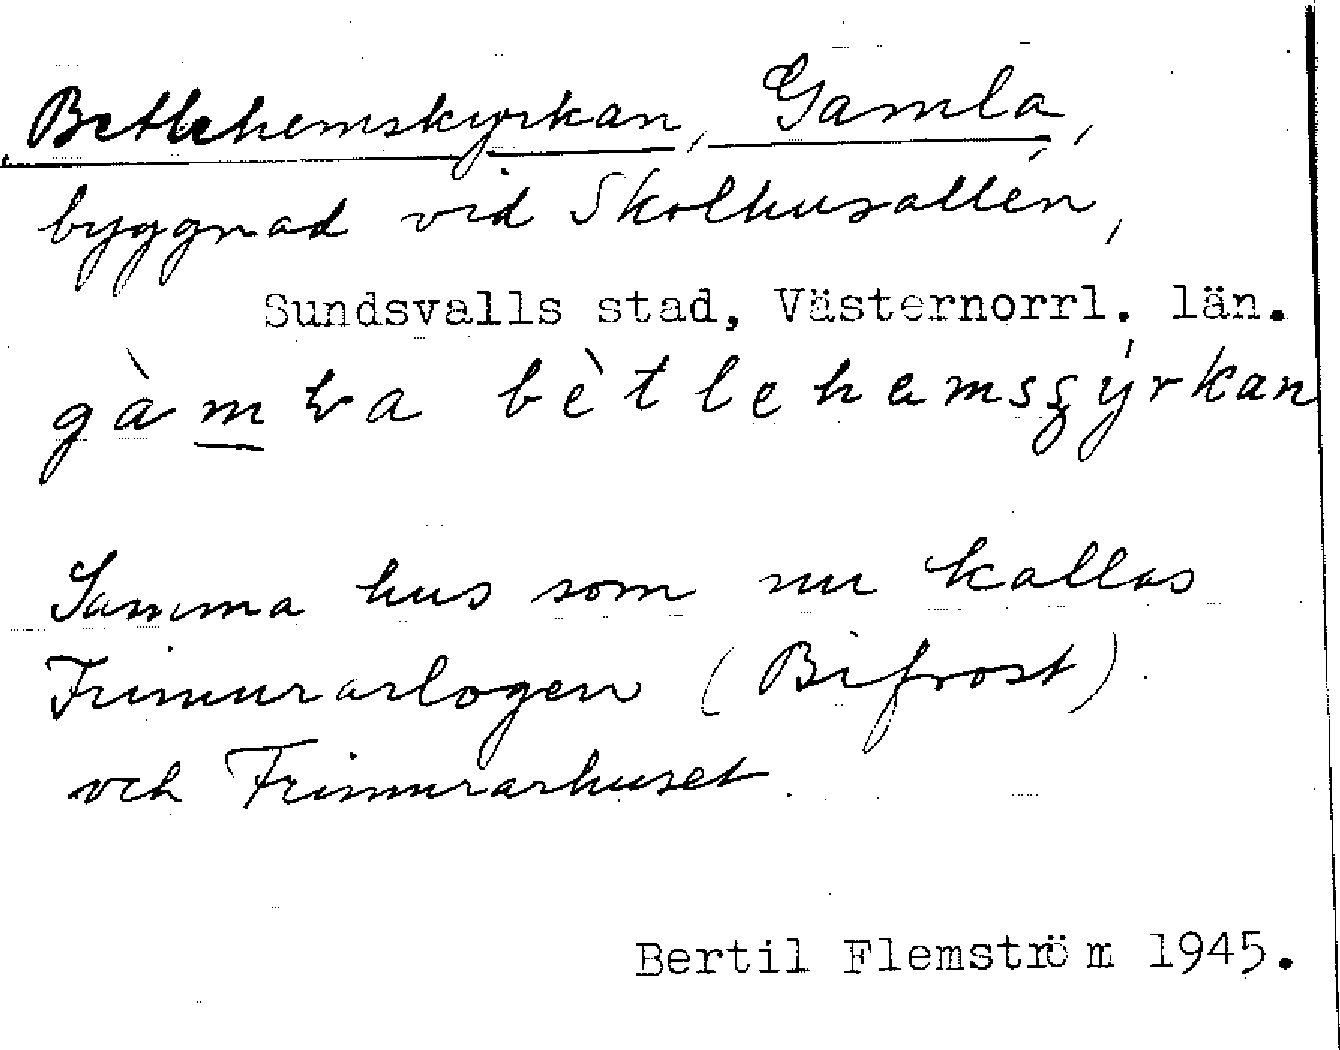 Betlehemskyrkan, Gamla,
byggnad vid Skolhusallén,
Sundsvalls stad, Västernorrl. län.
gàmɽa bètlehemsçýrkan
Samma hus som nu kallas
Frimurarlogen (Bifrost)
och Frimurarhuset.
Bertil Flemström 1945.